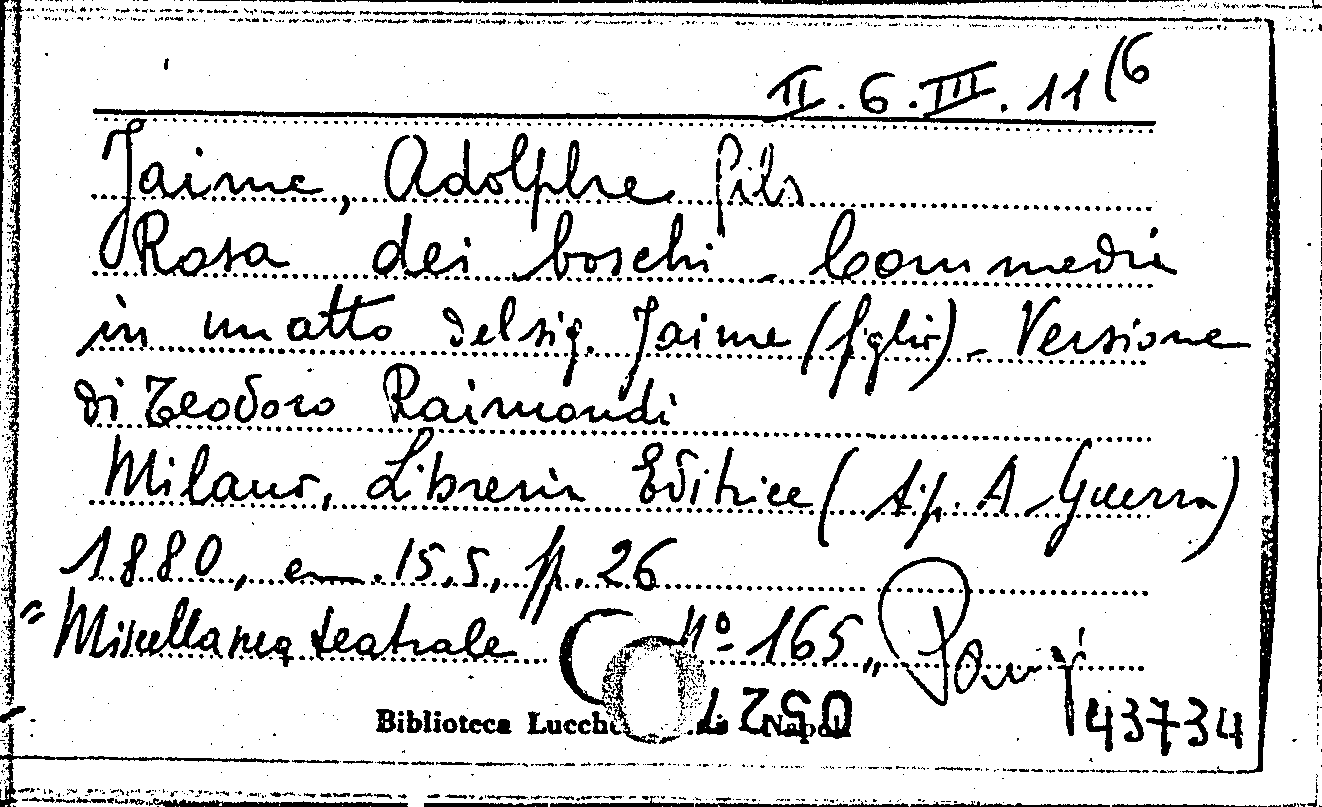 II.6.III.11(6
Jaime, Adolphe fils
Rosa dei boschi - Commedia
in un atto del sig. Jaime (figlio) - Versione
di Teodoro Raimondi
Milano, Libreria Editrice (tip. A. Guerra)
1880, cm. 15,5, pp. 26
"Miscellanea teatrale Nº 165"
Biblioteca Napoli
43734